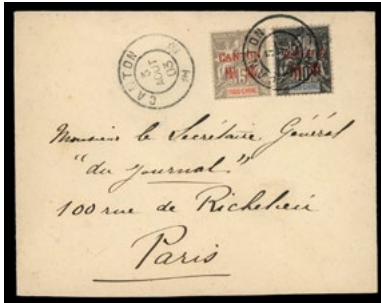 CANTON
5
AOUT
03
CANTON
15
INDO-CHINE
Monsieur le Secrétaire Général
"du Journal"
100 rue de Richelieu
Paris